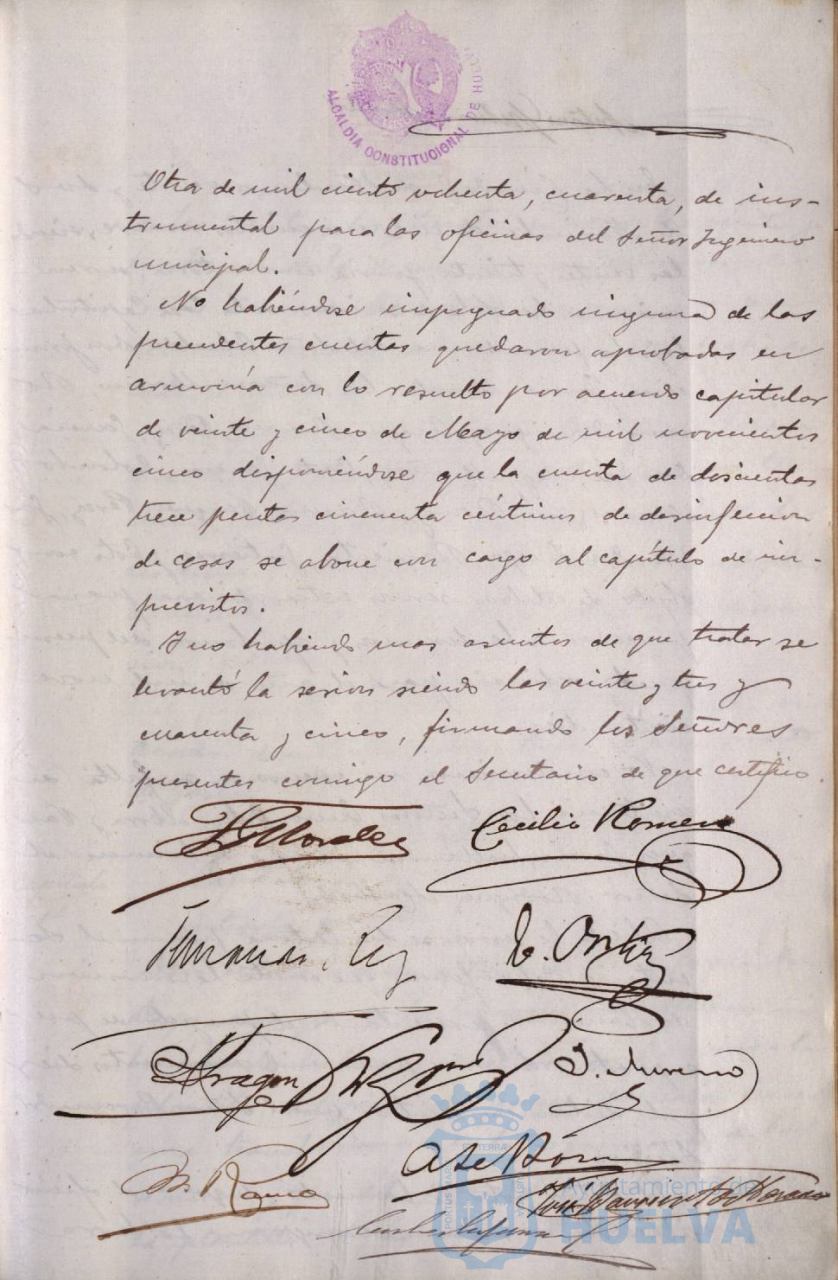 ALCALDIA CONSTITUCIONAL DE HUELVA
Otra de mil ciento ochenta, cuarenta, de ins-
trumental para las oficinas del Señor Ingeniero
municipal.
No habiéndose impugnado ninguna de las
precedentes cuentas quedaron aprobadas en
armonía con lo resuelto por acuerdo capitular
de veinte y cinco de Mayo de mil novecientos
cinco disponiéndose que la cuenta de doscientas
trece pesetas cincuenta céntimos de desinfeccion
de casas se abone con cargo al capítulo de im-
previstos.
Y no habiendo mas asuntos de que tratar se
levantó la sesion siendo las veinte y tres y
cuarenta y cinco, firmando los Señores
presentes conmigo el Secretario de que certifico.
Morales Cecilio Romero
Rey T. Ortiz
Aragon J. Moreno
Ayuntamiento de
HUELVA